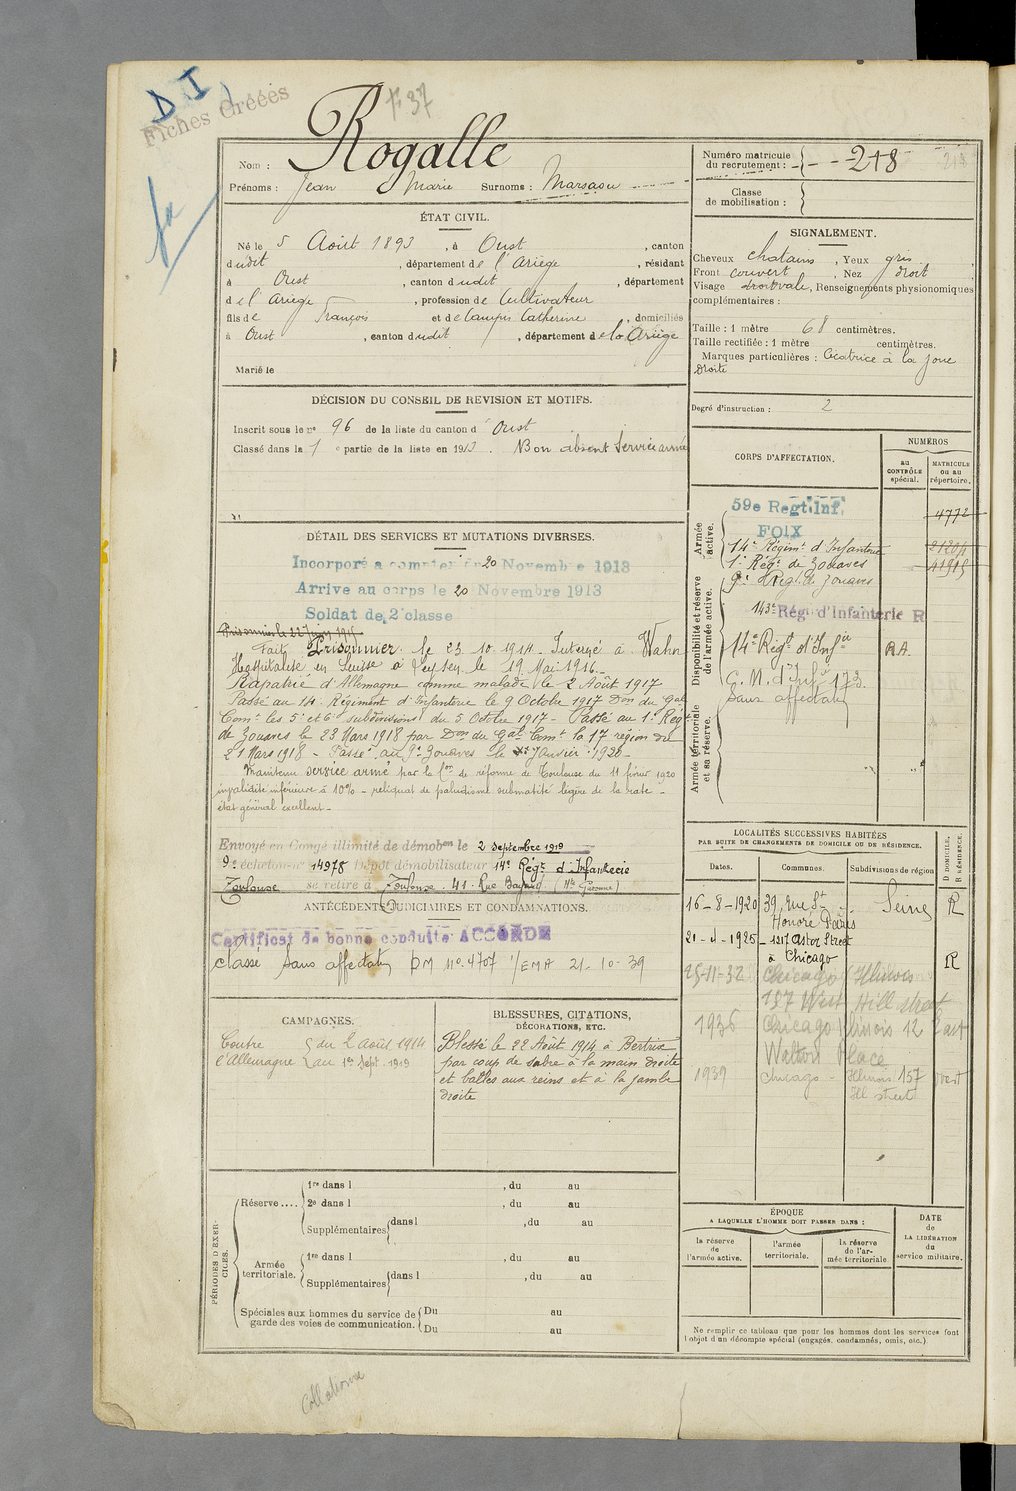 D I
Fiches Créées
F 37
Rogalle
Nom :
Prénoms : Jean Marie Surnoms : Marsaou
Numéro matricule
du recrutement : 218
Classe
de mobilisation :
ÉTAT CIVIL.
Né le 5 Août 1893, à Oust, canton
dudit, département de l'Ariège, résidant
à Oust, canton dudit, département
de l'Ariège, profession de Cultivateur
fils de François et de Catherine, domiciliés
à Oust, canton dudit, département de la Ariège
Marié le
SIGNALEMENT.
Cheveux chatains, Yeux gris
Front couvert, Nez droit
Visage ovale, Renseignements physionomiques
complémentaires :
Taille : 1 mètre 68 centimètres.
Taille rectifiée : 1 mètre centimètres.
Marques particulières : Cicatrice à la joue
droite
Degré d'instruction : 2
DÉCISION DU CONSEIL DE REVISION ET MOTIFS.
Inscrit sous le n° 96 de la liste du canton d'Oust
Classé dans la 1e partie de la liste en 1913. Bon absent Service armé
DÉTAIL DES SERVICES ET MUTATIONS DIVERSES.
Incorporé à compter du 20 Novembre 1913
Arrivé au corps le 20 Novembre 1913
Soldat de 2e classe
Prisonnier le 22 Juin 1915
Fait Prisonnier le 23.10.1914. Interné à Wahn
Hospitalisé en Suisse à Leysen le 19 Mai 1916.
Rapatrié d'Allemagne comme malade le 2 Août 1917
Passé au 14e Régiment d'Infanterie le 9 Octobre 1917 Don du Gal
Comt les 5e et 6e subdivisions du 5 Octobre 1917 - Passé au 1er Régt
de Zouaves le 23 Mars 1918 par Don du Gal Comt la 17 région du
21 Mars 1918 - Passé au 9e Zouaves le Janvier 1920 -
Maintenu service armé par la Con de réforme de Toulouse du 11 février 1920
invalidité inférieure à 10% - reliquat de paludisme submatité légère de la rate -
état général excellent -
Envoyé en Congé illimité de démobon le 2 Septembre 1919
9e échelon n° 14978 Dépôt démobilisateur 14e Régt d'Infanterie
Toulouse se retire à Toulouse. 41. Rue Bayard (Hte Garonne)
ANTÉCÉDENTS JUDICIAIRES ET CONDAMNATIONS.
Certificat de bonne conduite ACCORDÉ
classé sans affectation DM n° 4707 1/EMA 21-10-39
CAMPAGNES.
Contre l'Allemagne du 2 Août 1914
au 1er Sept. 1919
BLESSURES, CITATIONS,
DÉCORATIONS, ETC.
Blessé le 22 Août 1914 à Bertrix
par coup de sabre à la main droite
et balles aux reins et à la jambe
droite
CORPS D'AFFECTATION.
NUMÉROS
au
CONTRÔLE
spécial.
MATRICULE
ou au
répertoire.
Armée
active.
59e Regt. Inf. 4772
FOIX
14e Régimt d'Infanterie 21204
1er Régt de Zouaves 41915
9e Régt de Zouaves
Disponibilité et réserve
de l'armée active.
143e Régt d'Infanterie R
14e Régt d'Infie RA.
G. M. d'Inf. 173.
Sans affectation
Armée territoriale
et sa réserve.
LOCALITÉS SUCCESSIVES HABITÉES
PAR SUITE DE CHANGEMENTS DE DOMICILE OU DE RÉSIDENCE.
Dates. Communes. Subdivisions de région
D DOMICILE.
R RÉSIDENCE.
16-8-1920 39, rue St Seine R
Honoré Paris
21-4-1925 - 1217 Astor Street
à Chicago R
25-11-32 Chicago Illinois
157 West Hill street
1936 Chicago Illinois 12 East
Walton Place
1939 Chicago - Illinois 157 West
Ill street
PÉRIODES D'EXERCICES.
Réserve....
1re dans l , du au
2e dans l , du au
Supplémentaires dans l , du au
Armée
territoriale.
1re dans l , du au
Supplémentaires dans l , du au
Spéciales aux hommes du service de
garde des voies de communication.
Du au
Du au
ÉPOQUE
A LAQUELLE L'HOMME DOIT PASSER DANS :
la réserve
de
l'armée active.
l'armée
territoriale.
la réserve
de l'ar-
mée territoriale
DATE
de
LA LIBÉRATION
du
service militaire.
Ne remplir ce tableau que pour les hommes dont les services font
l'objet d'un décompte spécial (engagés, condamnés, omis, etc.).
Collationné